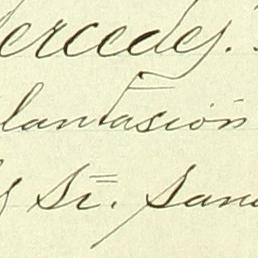 ercedes.
lantasión
St. San